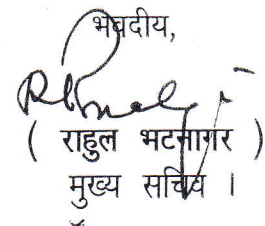 भवदीय,
( राहुल भटनागर )
मुख्य सचिव ।